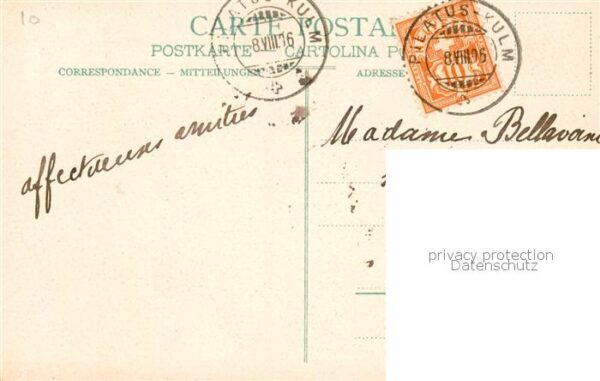 10
CARTE POSTA
POSTKARTE CARTOLINA PO
CORRESPONDANCE – MITTEILUNGEN ADRESSE
PILATUS-KULM
8.VIII.06
PILATUS-KULM
8.VIII.06
10
affectueuses amitiés
Madame
privacy protection
Datenschutz